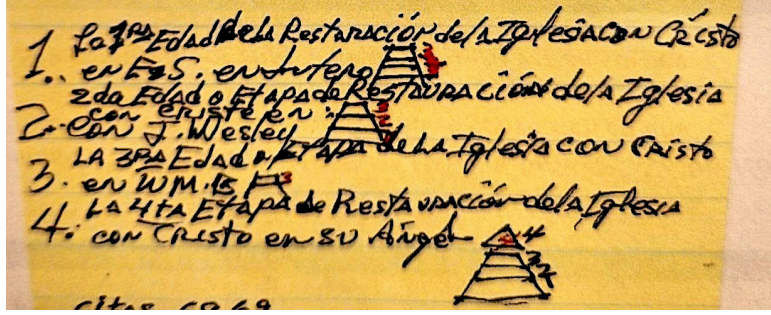 1. La 1RA Edad de la Restauración de la Iglesia con Cristo
en E y S. en Lutero
2da Edad o Etapa de Restauración de la Iglesia
2. con Cristo en:
con J. Wesley
3
2
LA 3RA Edad o Etapa de La Iglesia con Cristo
3. en WM. B 3
LA 4ta Etapa de Restauración de la Iglesia
4. con Cristo en su Ángel
4
3
2
1
citas